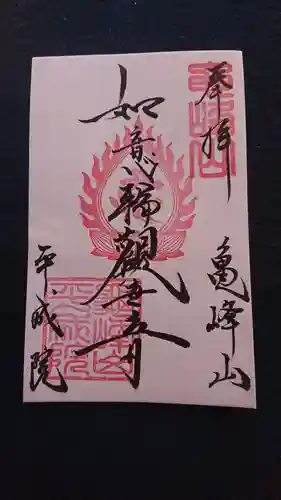 奉拝
亀峰山
如意輪観世音
平成院